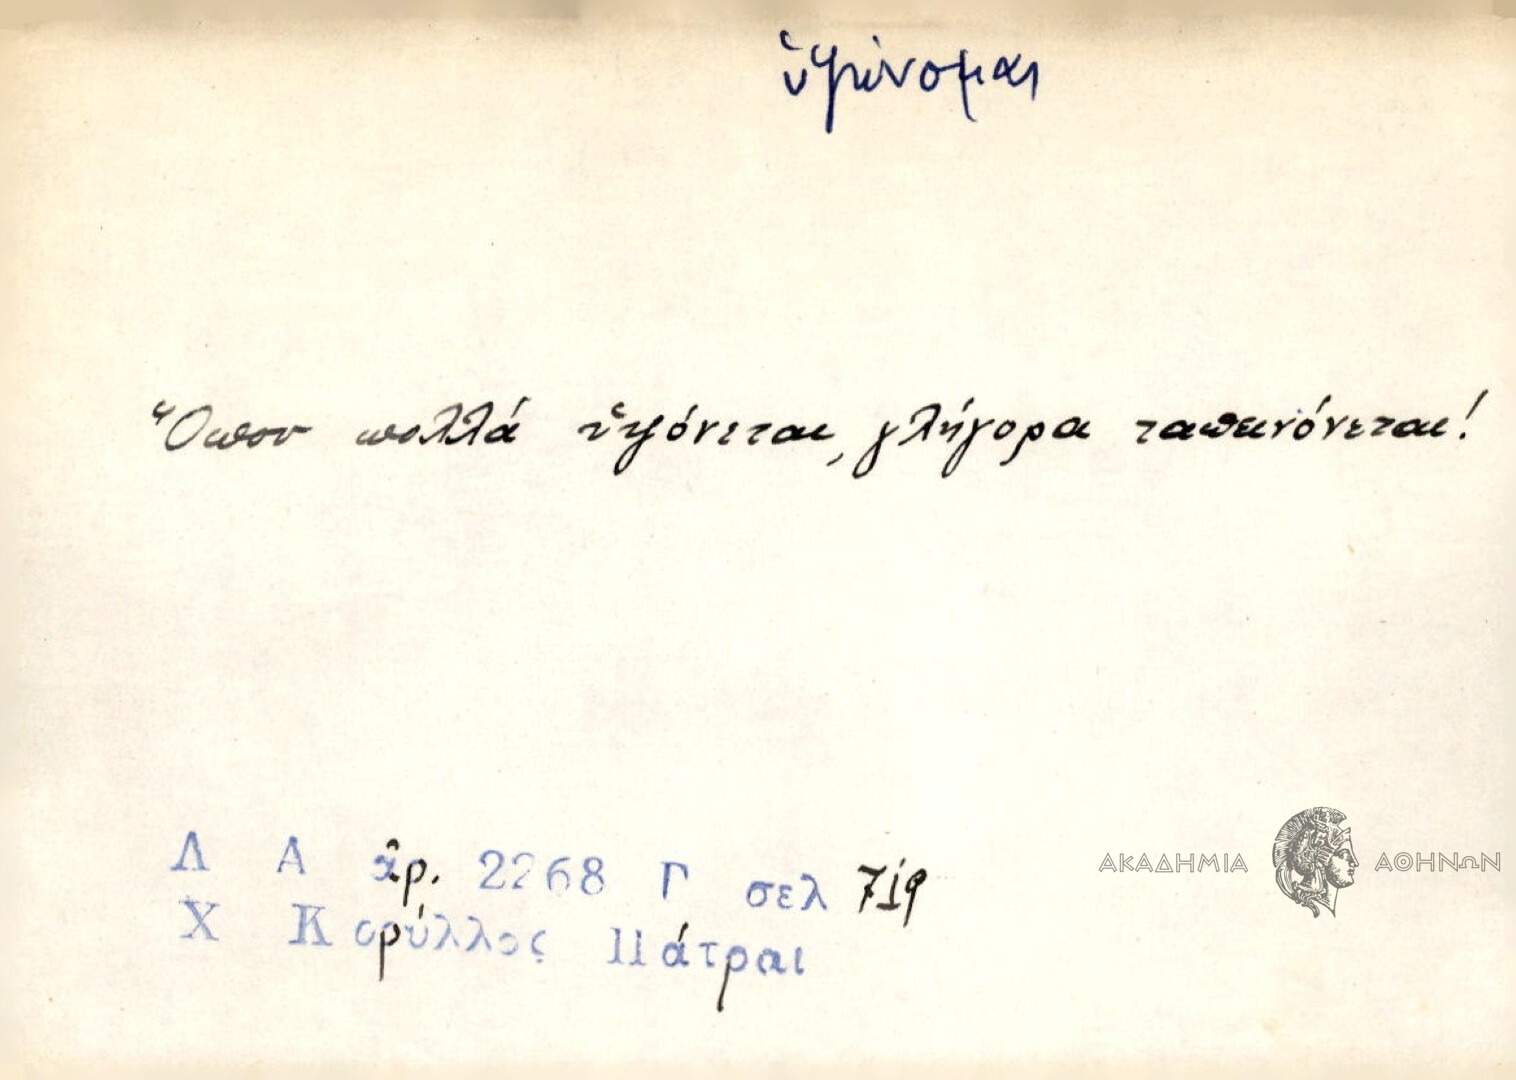 ὑψώνομαι
Ὅπου πολλά ὑψόνεται, γλήγορα ταπεινόνεται!
Λ Α ἀρ. 2268 Γ σελ 719
ΑΚΑΔΗΜΙΑ ΑΘΗΝΩΝ
Χ Κορύλλος Πάτραι